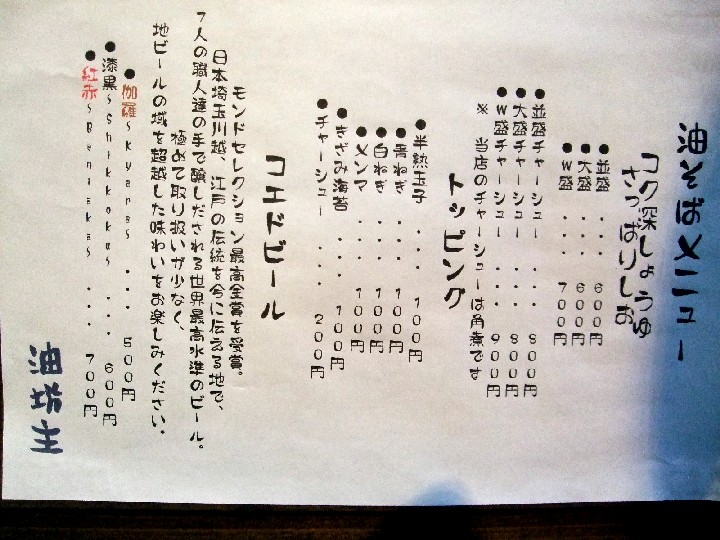 油そばメニュー
コク深しょうゆ
さっぱりしお
●並盛 ... 600円
●大盛 ... 600円
●W盛 ... 700円
●並盛チャーシュー ... 800円
●大盛チャーシュー ... 800円
●W盛チャーシュー ... 900円
※ 当店のチャーシューは角煮です
トッピング
●半熟玉子 ... 100円
●青ねぎ ... 100円
●白ねぎ ... 100円
●メンマ ... 100円
●きざみ海苔 ... 100円
●チャーシュー ... 200円
コエドビール
モンドセレクション最高金賞を受賞。
日本埼玉川越、江戸の伝統を今に伝える地で、
7人の職人達の手で醸しだされる世界最高水準のビール。
極めて取り扱いが少なく、
地ビールの域を超越した味わいをお楽しみください。
●伽羅~Kyara~ ... 500円
●漆黒~Shikkoku~ ... 600円
●紅赤~Beniaka~ ... 700円
油坊主